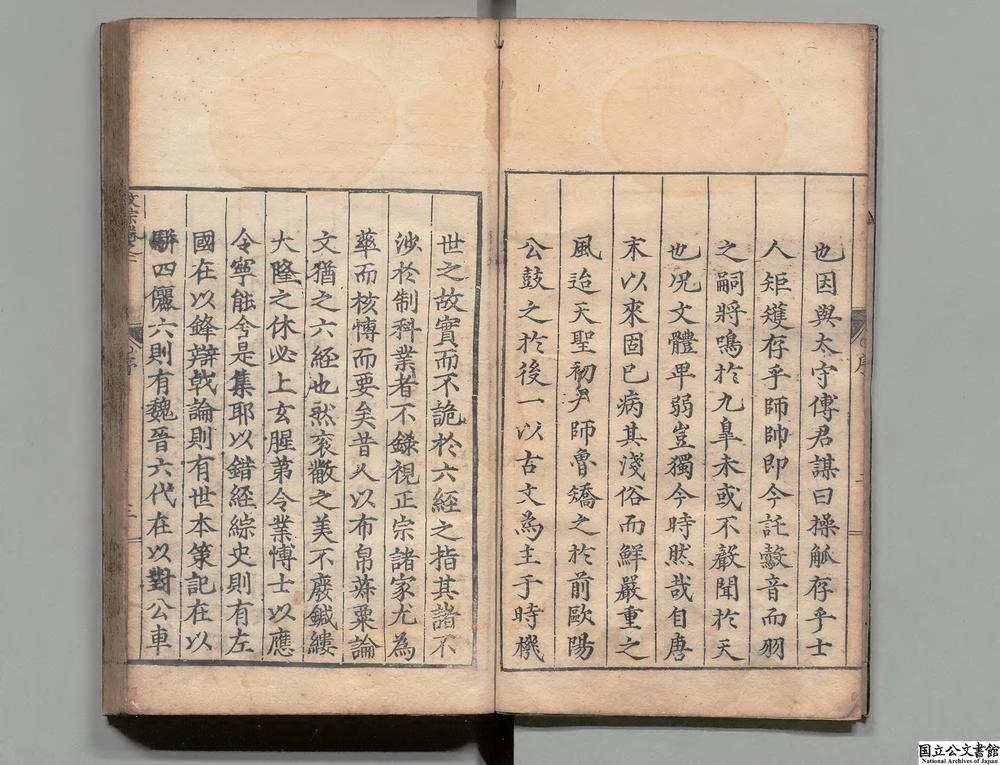 也因與太守傅君謀曰操觚存乎士
人矩矱存乎師帥即今託鷇音而羽
之嗣將鳴於九臯未或不聲聞於天
也况文體卑弱豈獨今時然哉自唐
末以來固已病其淺俗而鮮嚴重之
風迨天聖初尹師魯矯之於前歐陽
公鼓之於後一以古文為主于時機
世之故實而不詭於六經之指其諸不
沙於制科業者不鎌視正宗諸家尤為
華而核博而要矣昔人以布帛菽粟論
文猶之六經也然衮黻之美不廢鍼縷
大隆之休必上玄腥第令業博士以應
令寧能兮是集耶以錯經綜史則有左
國在以鋒辯戟論則有世本策記在以
駢四儷六則有魏晉六代在以對公車
文宗
序
三
序
國立公文書館
National Archives of Japan